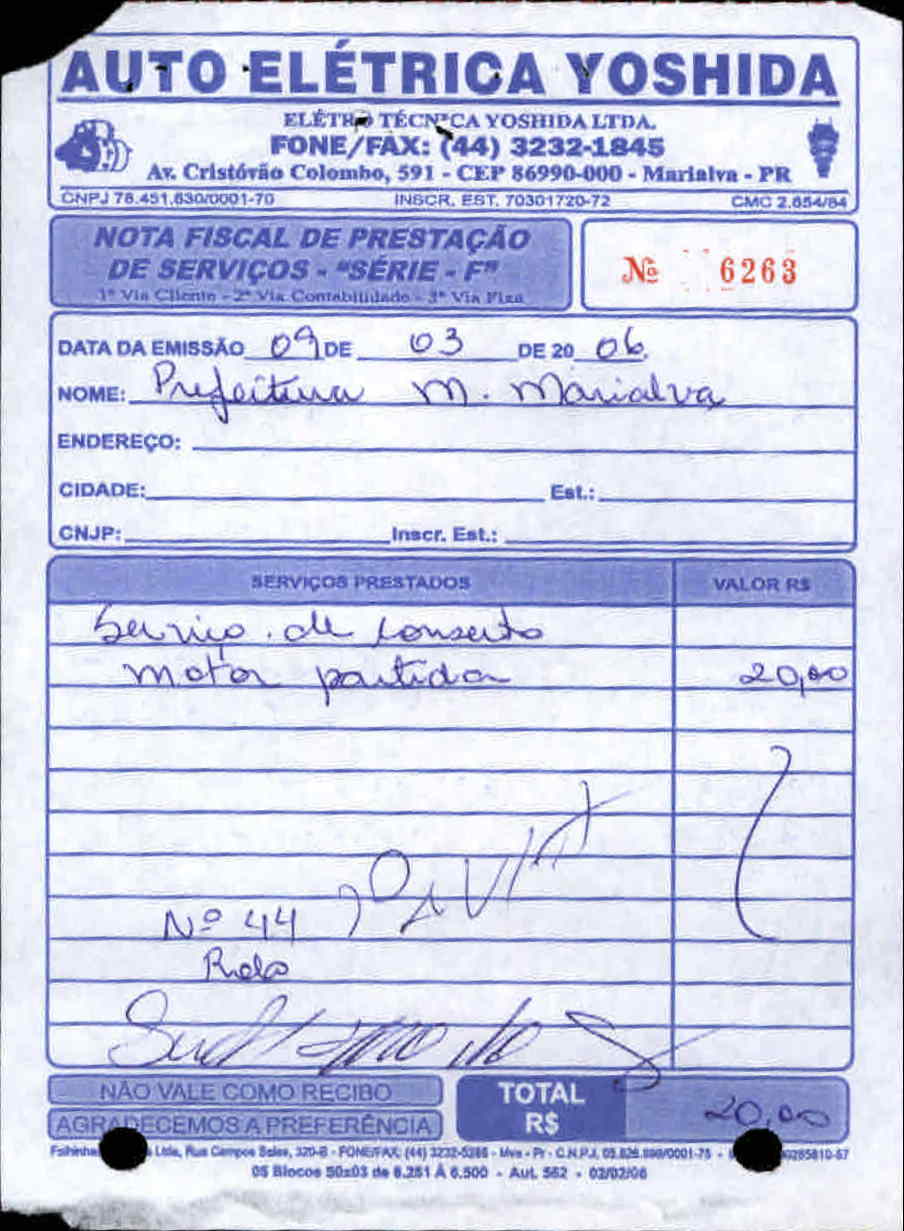 AUTO ELÉTRICA YOSHIDA
ELÉTRO TÉCNICA YOSHIDA LTDA.
FONE/FAX: (44) 3232-1845
Av. Cristóvão Colombo, 591 - CEP 86990-000 - Marialva - PR
CNPJ 78.451.630/0001-70 INSCR. EST. 70301720-72 CMC 2.654/84
NOTA FISCAL DE PRESTAÇÃO
DE SERVIÇOS - "SÉRIE - F"
1ª Via Cliente - 2ª Via Contabilidade - 3ª Via Fixa
Nº 6263
DATA DA EMISSÃO 09 DE 03 DE 20 06
NOME: Prefeitura M. Marialva
ENDEREÇO:
CIDADE: Est.:
CNJP: Inscr. Est.:
SERVIÇOS PRESTADOS VALOR R$
Serviço de conserto
motor partida 20,00
Nº 44
NÃO VALE COMO RECIBO
AGRADECEMOS A PREFERÊNCIA
TOTAL
R$ 20,00
Ltda, Rua Campos Sales, 320-B - FONE/FAX: (44) 3232-5286 - Mva - Pr - C.N.P.J.
05 Blocos 50x03 de 6.251 À 6.500 - Aut. 562 - 02/02/06